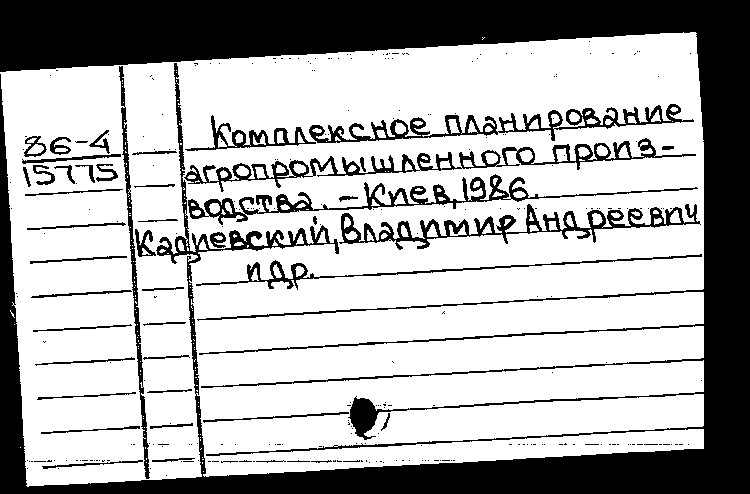 86-4
15775
Комплексное планирование
агропромышленного произ-
водства. – Киев, 1986.
Кадиевский, Владимир Андреевич
и др.